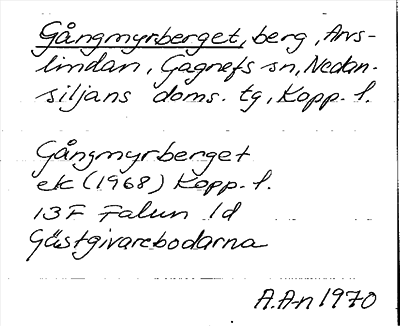 Gångmyrberget, berg, Ars-
lindan, Gagnefs sn, Nedan-
siljans doms. tg, Kopp. l.
Gångmyrberget
ek (1968) Kopp. l.
13F Falun 1d
Gästgivarebodarna
A.A-n 1970